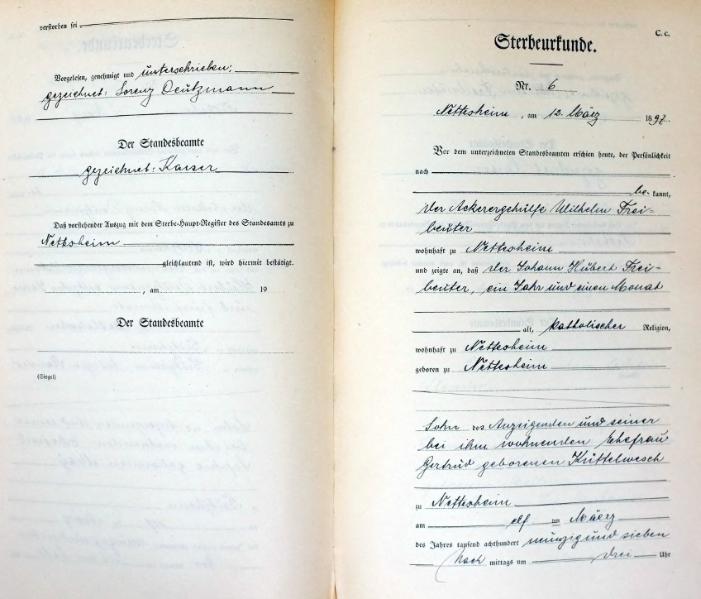 verstorben sei
Vorgelesen, genehmigt und unterschrieben;
gezeichnet: Lorenz Deutzmann
Der Standesbeamte
gezeichnet: Kaiser
Daß vorstehender Auszug mit dem Sterbe-Haupt-Register des Standesamts zu
Nettesheim
gleichlautend ist, wird hiermit bestätigt.
, am 19
Der Standesbeamte
(Siegel)
C. c.
Sterbeurkunde.
Nr. 6
Nettesheim, am 12. März 1897.
Vor dem unterzeichneten Standesbeamten erschien heute, der Persönlichkeit
nach
be kannt,
der Ackerergehülfe Wilhelm Frei-
beuter
wohnhaft zu Nettesheim
und zeigte an, daß der Johann Hubert Frei-
beuter, ein Jahr und einen Monat
alt, katholischer Religion,
wohnhaft zu Nettesheim
geboren zu Nettesheim
Sohn des Anzeigenden und seiner
bei ihm wohnenden Ehefrau
Gertrud geborenen Küttelwesch
zu Nettesheim
am elf ten März
des Jahres tausend achthundert neunzig und sieben
Nach mittags um drei Uhr